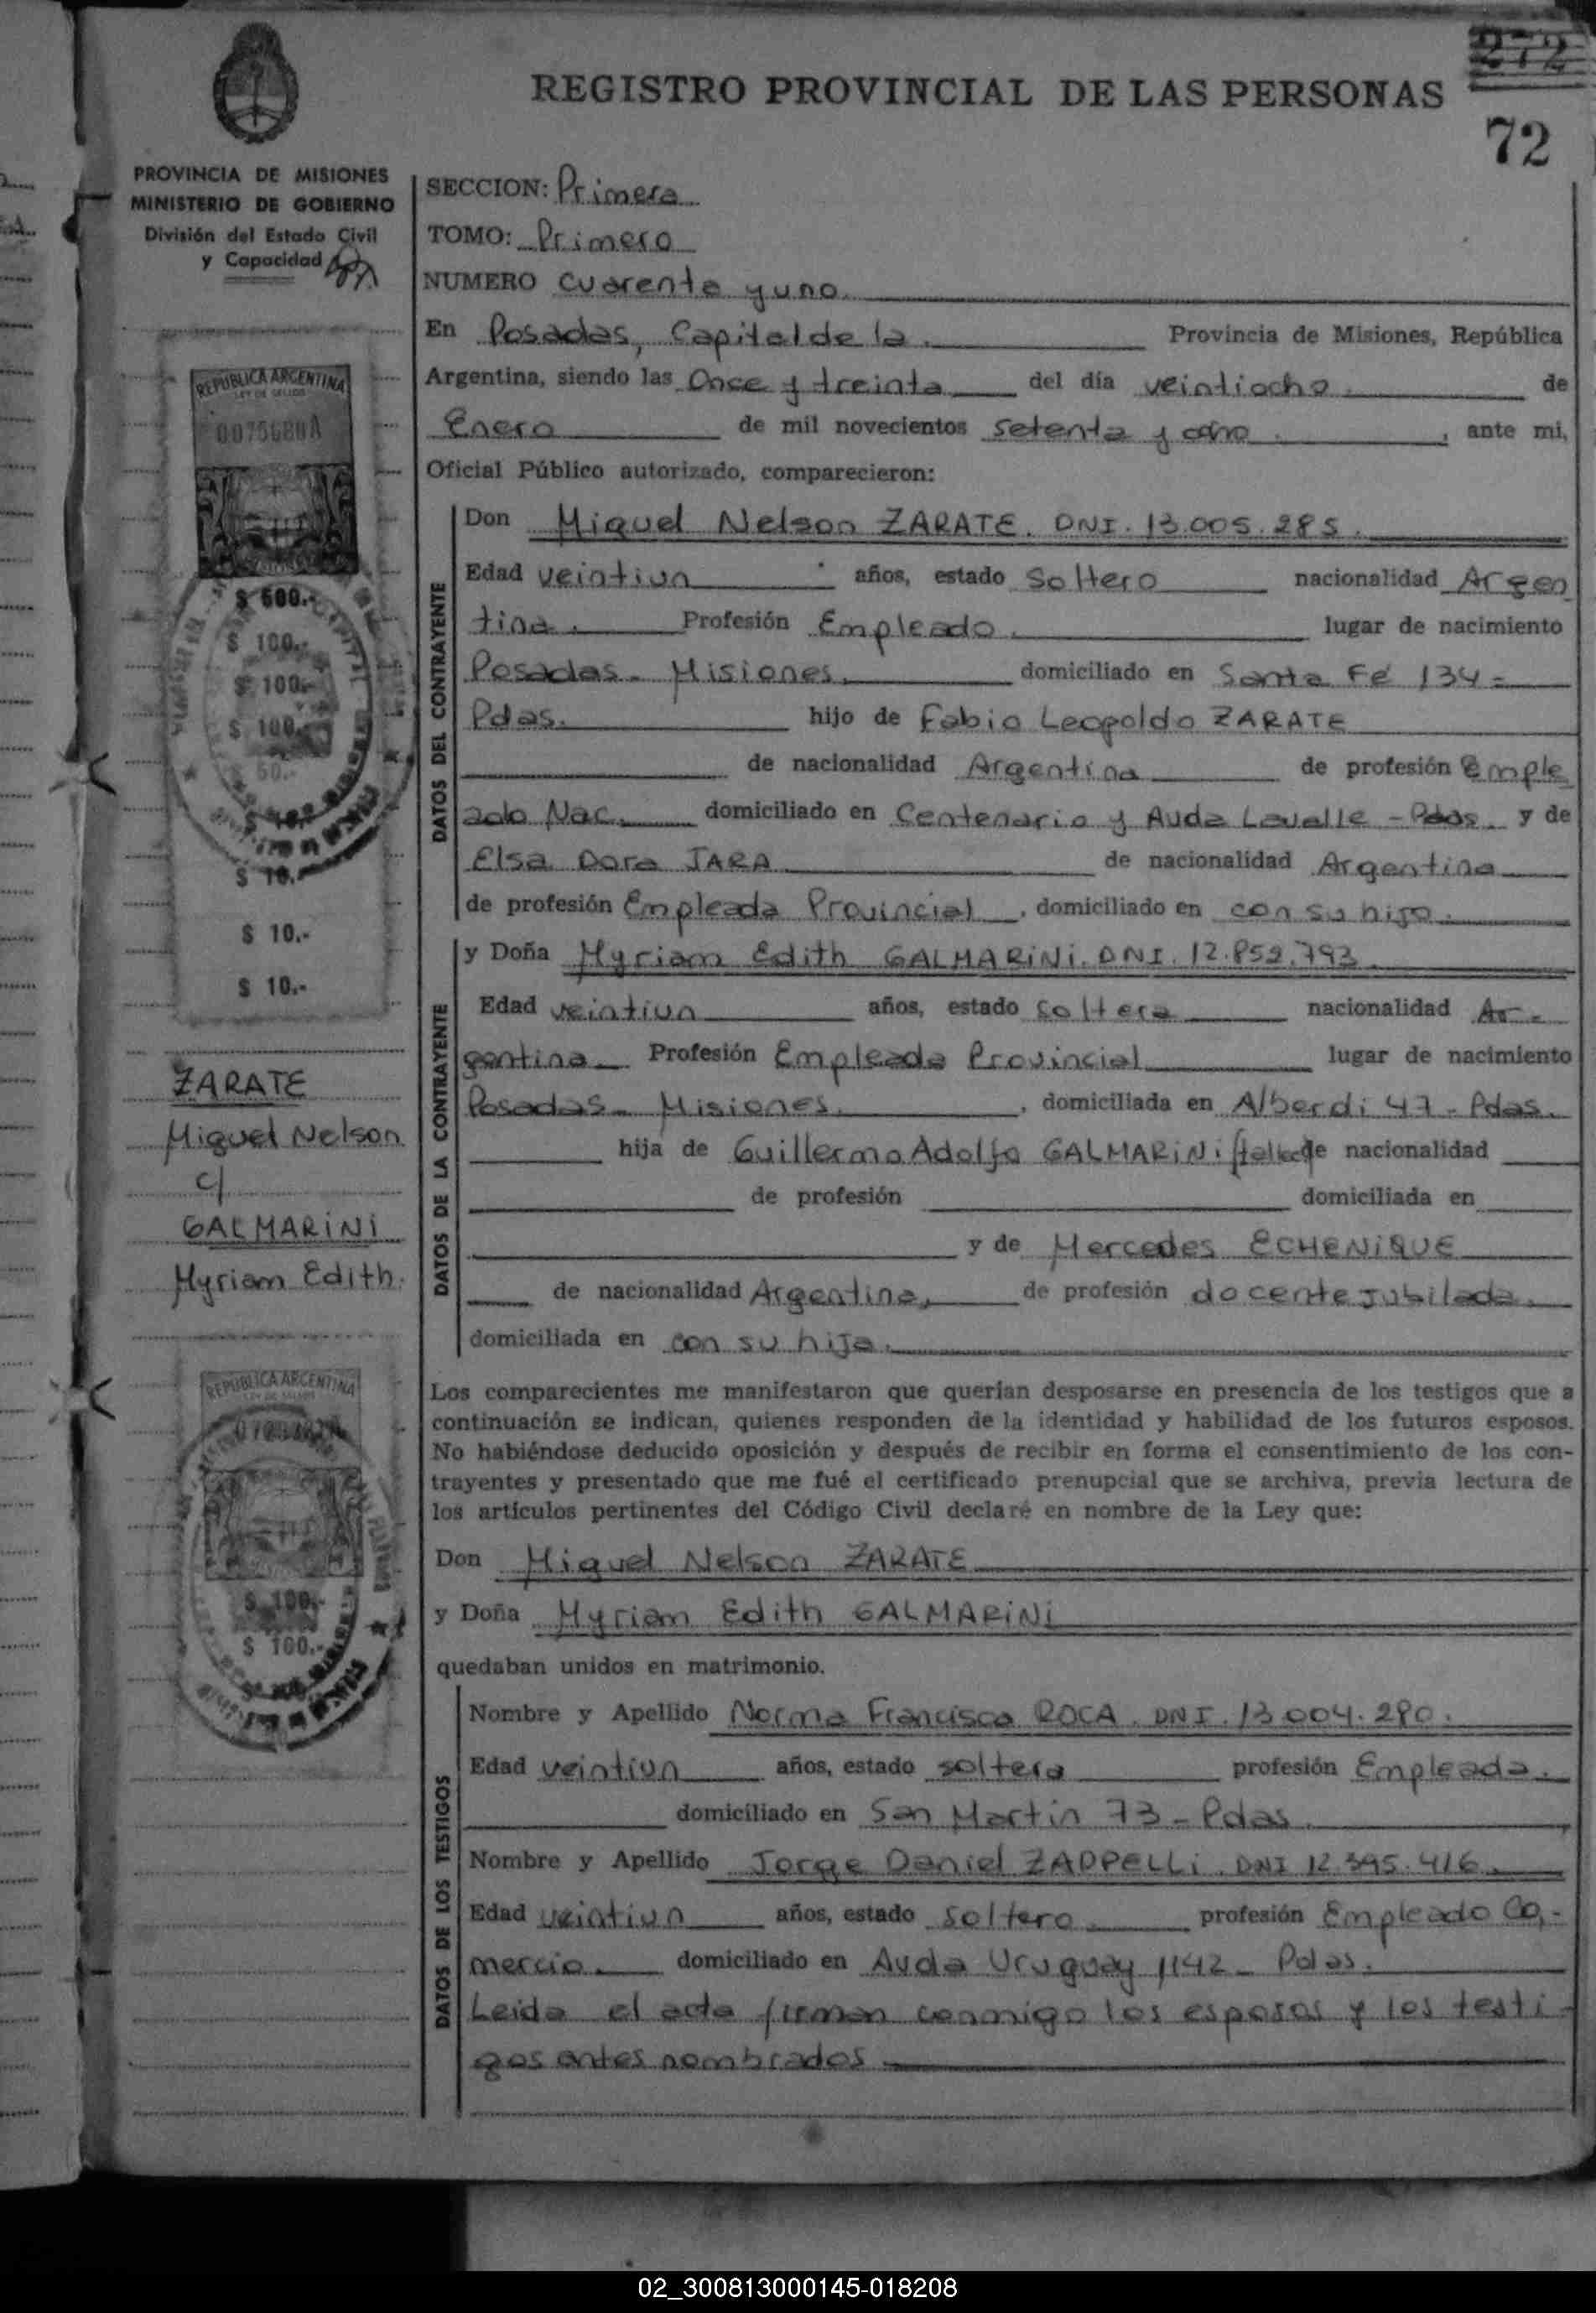 272
REGISTRO PROVINCIAL DE LAS PERSONAS
72
PROVINCIA DE MISIONES
MINISTERIO DE GOBIERNO
División del Estado Civil
y Capacidad
SECCION: Primera
TOMO: Primero
NUMERO Cuarenta y uno.
En Posadas, Capital de la. Provincia de Misiones, República
Argentina, siendo las Once y treinta del día veintiocho. de
Enero de mil novecientos setenta y ocho. , ante mi,
Oficial Público autorizado, comparecieron:
DATOS DEL CONTRAYENTE
Don Miguel Nelson ZARATE. DNI. 13.005.285.
Edad veintiun años, estado Soltero nacionalidad Argen
tina. Profesión Empleado. lugar de nacimiento
Posadas. Misiones. domiciliado en Santa Fé 134-
Pdas. hijo de Fabio Leopoldo ZARATE
de nacionalidad Argentina de profesión Emple
ado Nac. domiciliado en Centenario y Avda Lavalle - Pdas. y de
Elsa Dora JARA de nacionalidad Argentina
de profesión Empleada Provincial , domiciliado en con su hijo.
DATOS DE LA CONTRAYENTE
y Doña Myriam Edith GALMARINI. DNI. 12.852.793.
Edad veintiun años, estado soltera nacionalidad Ar-
gentina. Profesión Empleada Provincial lugar de nacimiento
Posadas. Misiones. , domiciliada en Alberdi 47 - Pdas.
hija de Guillermo Adolfo GALMARINI de nacionalidad
de profesión domiciliada en
y de Mercedes ECHENIQUE
de nacionalidad Argentina, de profesión docente jubilada.
domiciliada en con su hija.
Los comparecientes me manifestaron que querían desposarse en presencia de los testigos que a
continuación se indican, quienes responden de la identidad y habilidad de los futuros esposos.
No habiéndose deducido oposición y después de recibir en forma el consentimiento de los con-
trayentes y presentado que me fué el certificado prenupcial que se archiva, previa lectura de
los artículos pertinentes del Código Civil declaré en nombre de la Ley que:
Don Miguel Nelson ZARATE
y Doña Myriam Edith GALMARINI
quedaban unidos en matrimonio.
DATOS DE LOS TESTIGOS
Nombre y Apellido Norma Francisca ROCA. DNI. 13.004.280.
Edad veintiun años, estado soltera profesión Empleada.
domiciliado en San Martín 73 - Pdas.
Nombre y Apellido Jorge Daniel ZAPPELLI. DNI 12.395.416.
Edad veintiun años, estado soltero. profesión Empleado Co-
mercio. domiciliado en Avda Uruguay 1142 - Pdas.
Leida el acta firman conmigo los esposos y los testi-
gos antes nombrados
REPUBLICA ARGENTINA
LEY DE SELLOS
$ 600.-
$ 100.-
$ 100.-
$ 100.-
$ 50.-
$ 10.-
$ 10.-
$ 10.-
ZARATE
Miguel Nelson
c/
GALMARINI
Myriam Edith.
REPUBLICA ARGENTINA
$ 100.-
$ 100.-
02_300813000145-018208